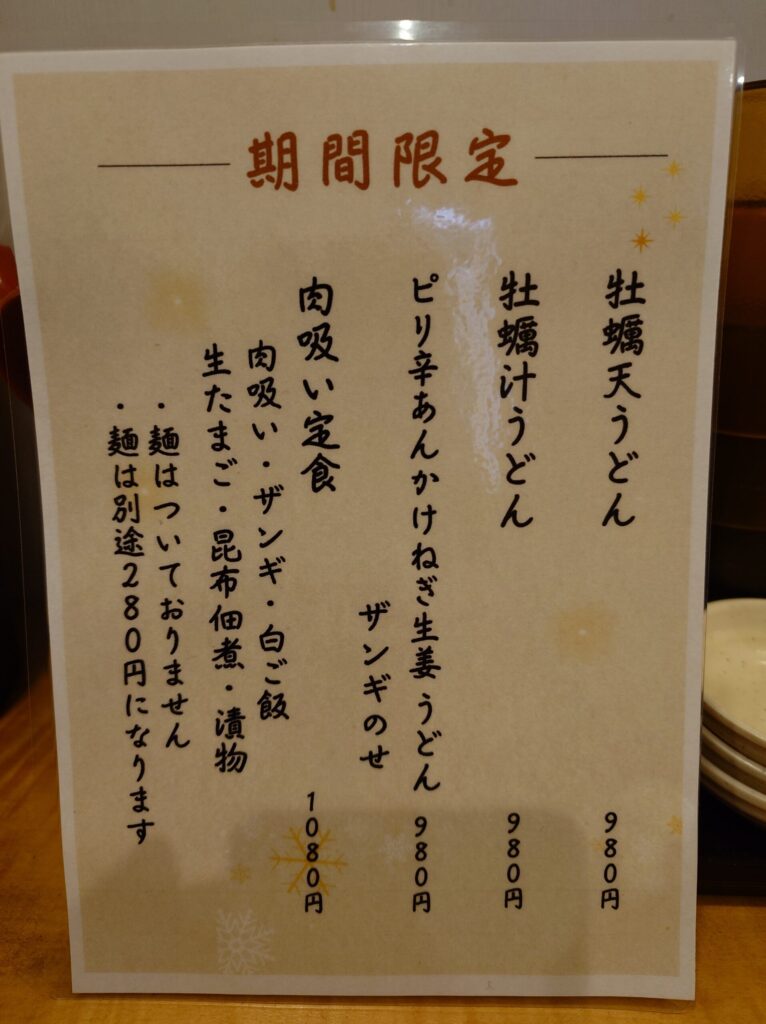 期間限定
牡蠣天うどん 980円
牡蠣汁うどん 980円
ピリ辛あんかけねぎ生姜うどん 980円
ザンギのせ
肉吸い定食 1080円
肉吸い・ザンギ・白ご飯
生たまご・昆布佃煮・漬物
・麺はついておりません
・麺は別途280円になります